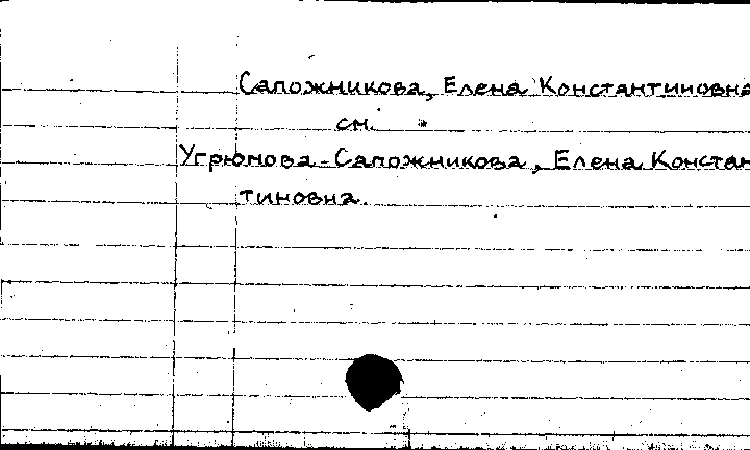 Сапожникова, Елена Константиновна
см.
Угрюмова-Сапожникова, Елена Констан
тиновна.